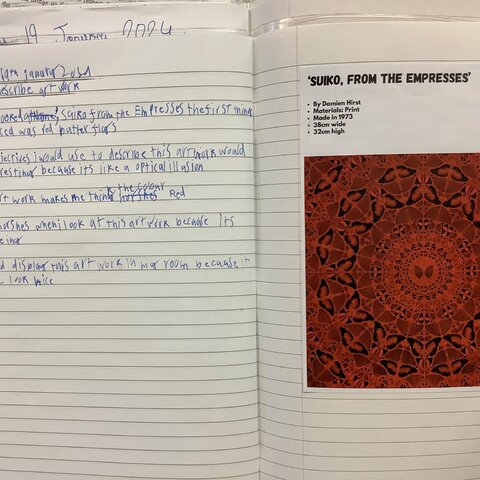 19 January 2024
January 2024
describe art work
looked at Suiko from the Empresses the first thing
was red butter flys
jectives i would use to describe this art work would
resting because its like a optical illusion
art work makes me think the colour Red
when i look at this art work because its
d display this art work in my room because it
look nice
'SUIKO, FROM THE EMPRESSES'
• By Damien Hirst
• Materials: Print
• Made in 1973
• 38cm wide
• 32cm high